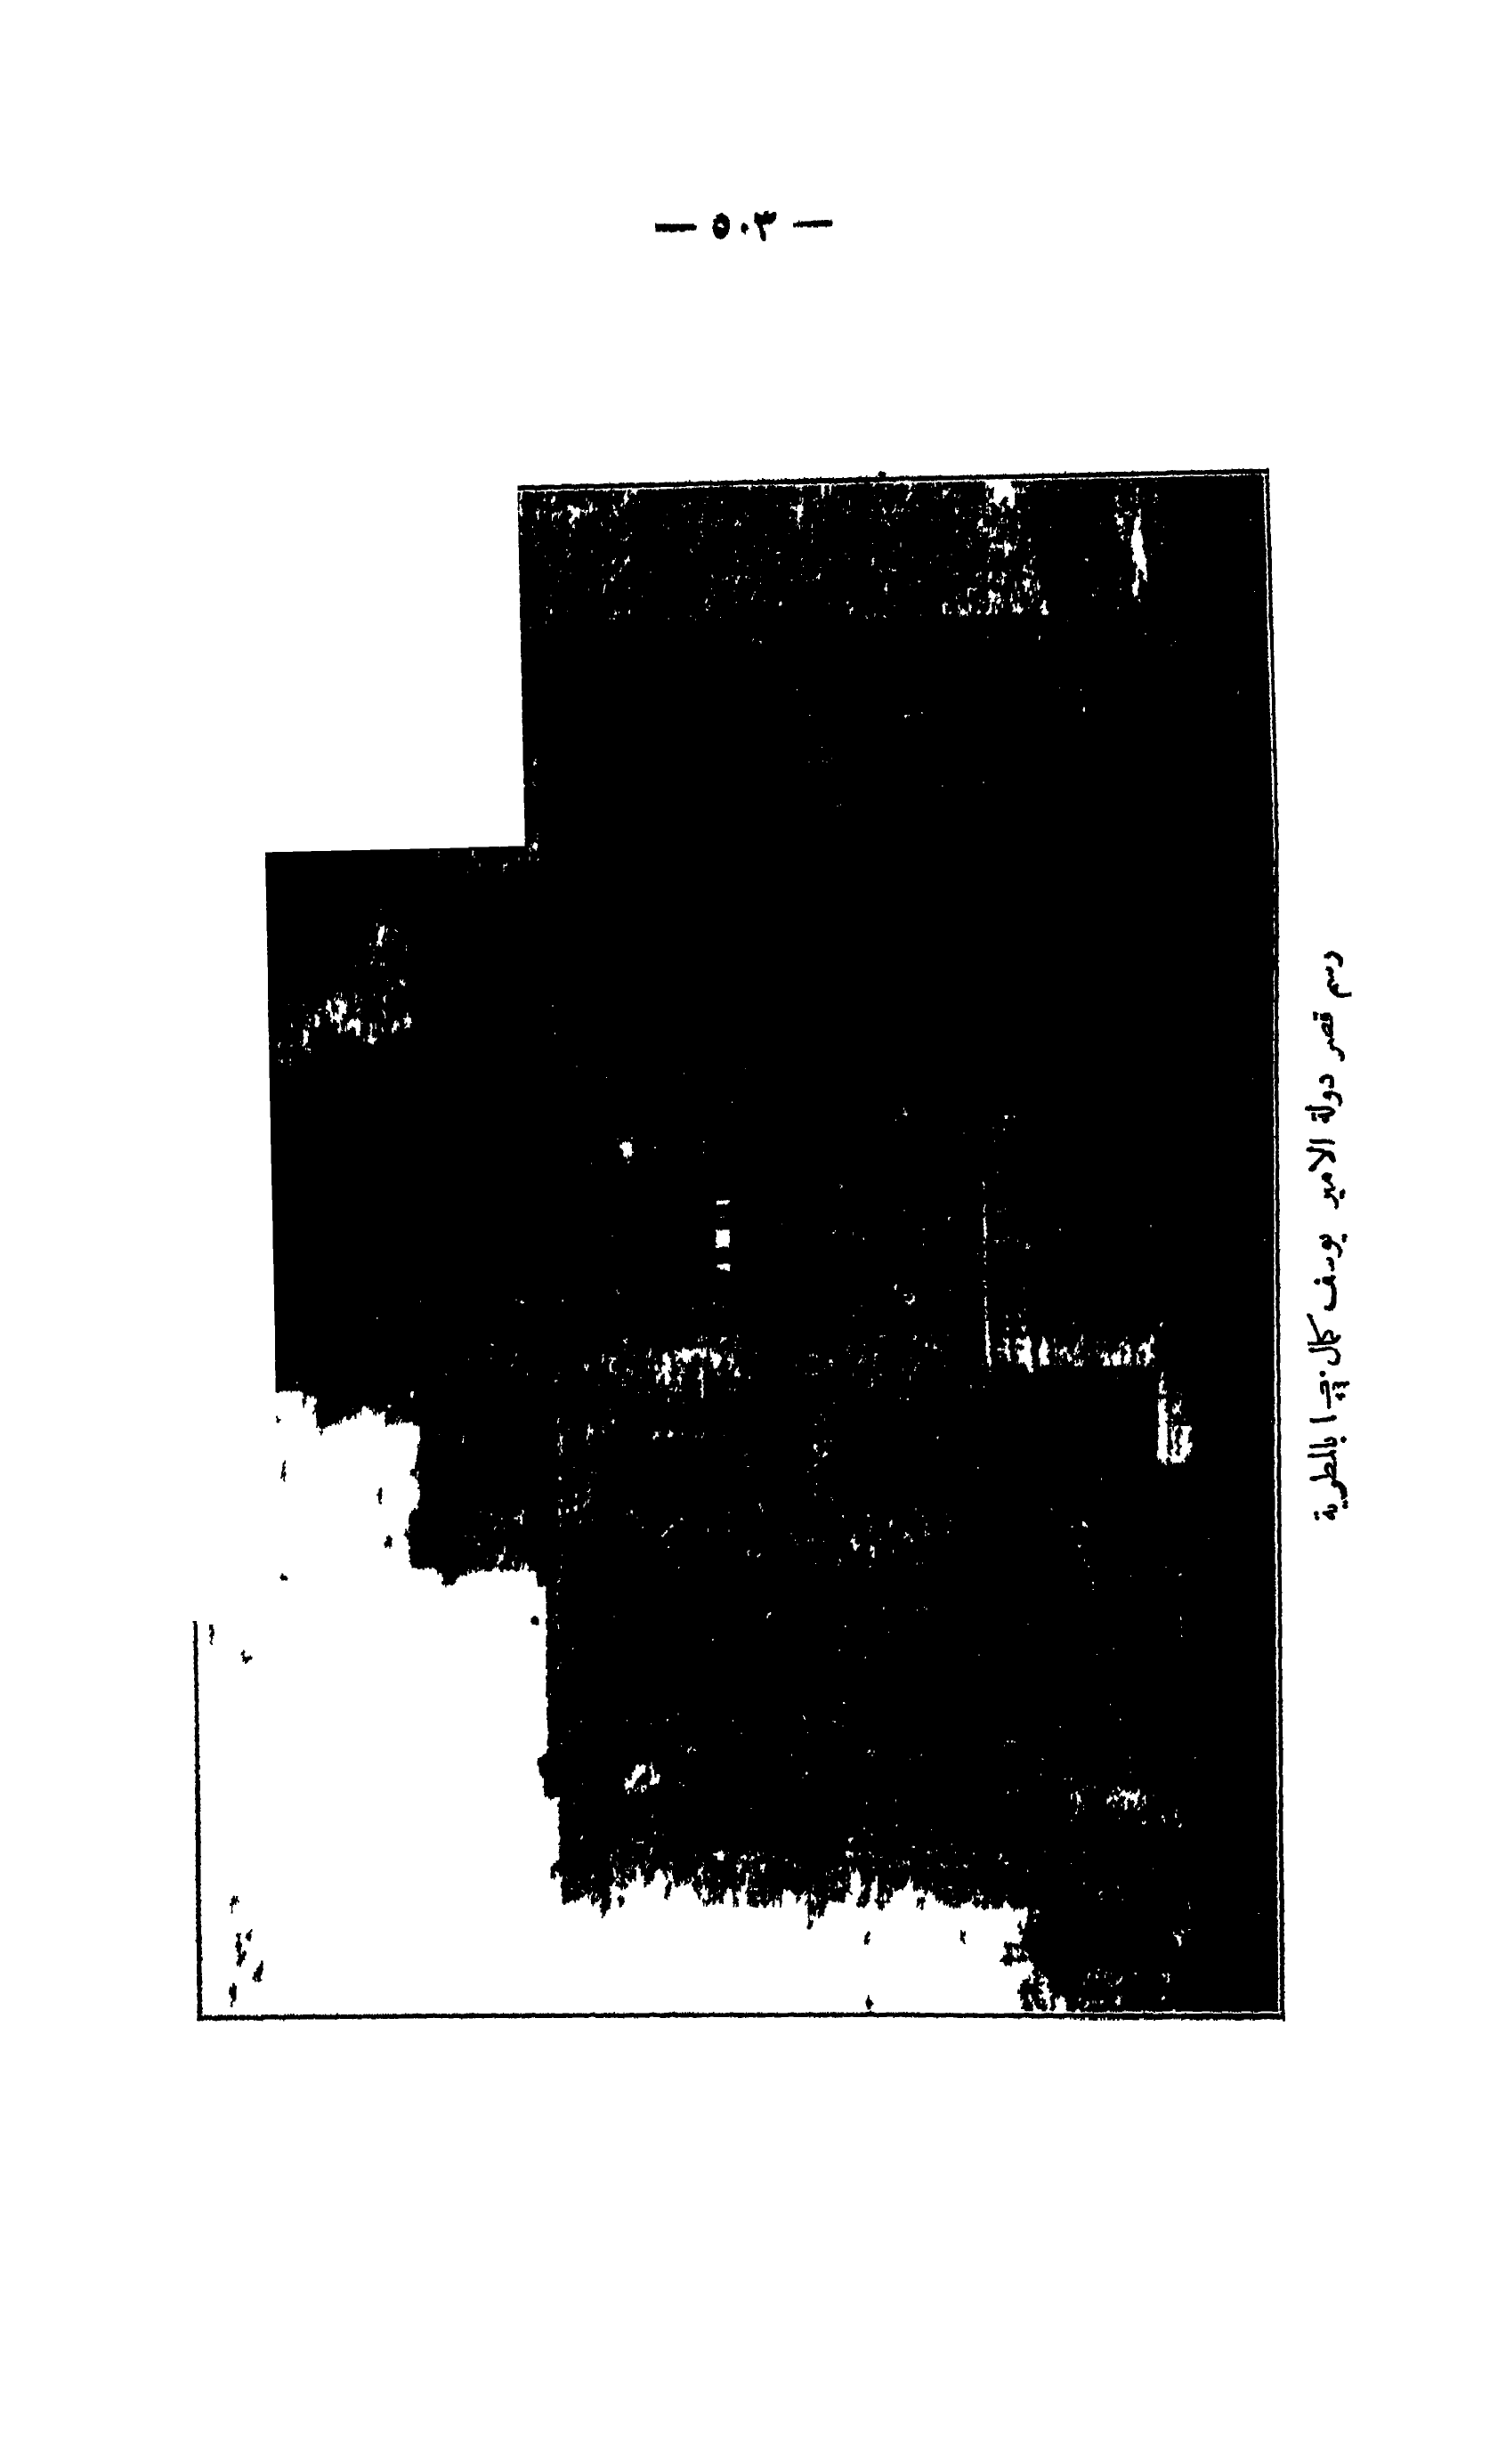 — ٥٠٣ —
رسم قصر دولة الامير يوسف كمال پاشا بالمطرية